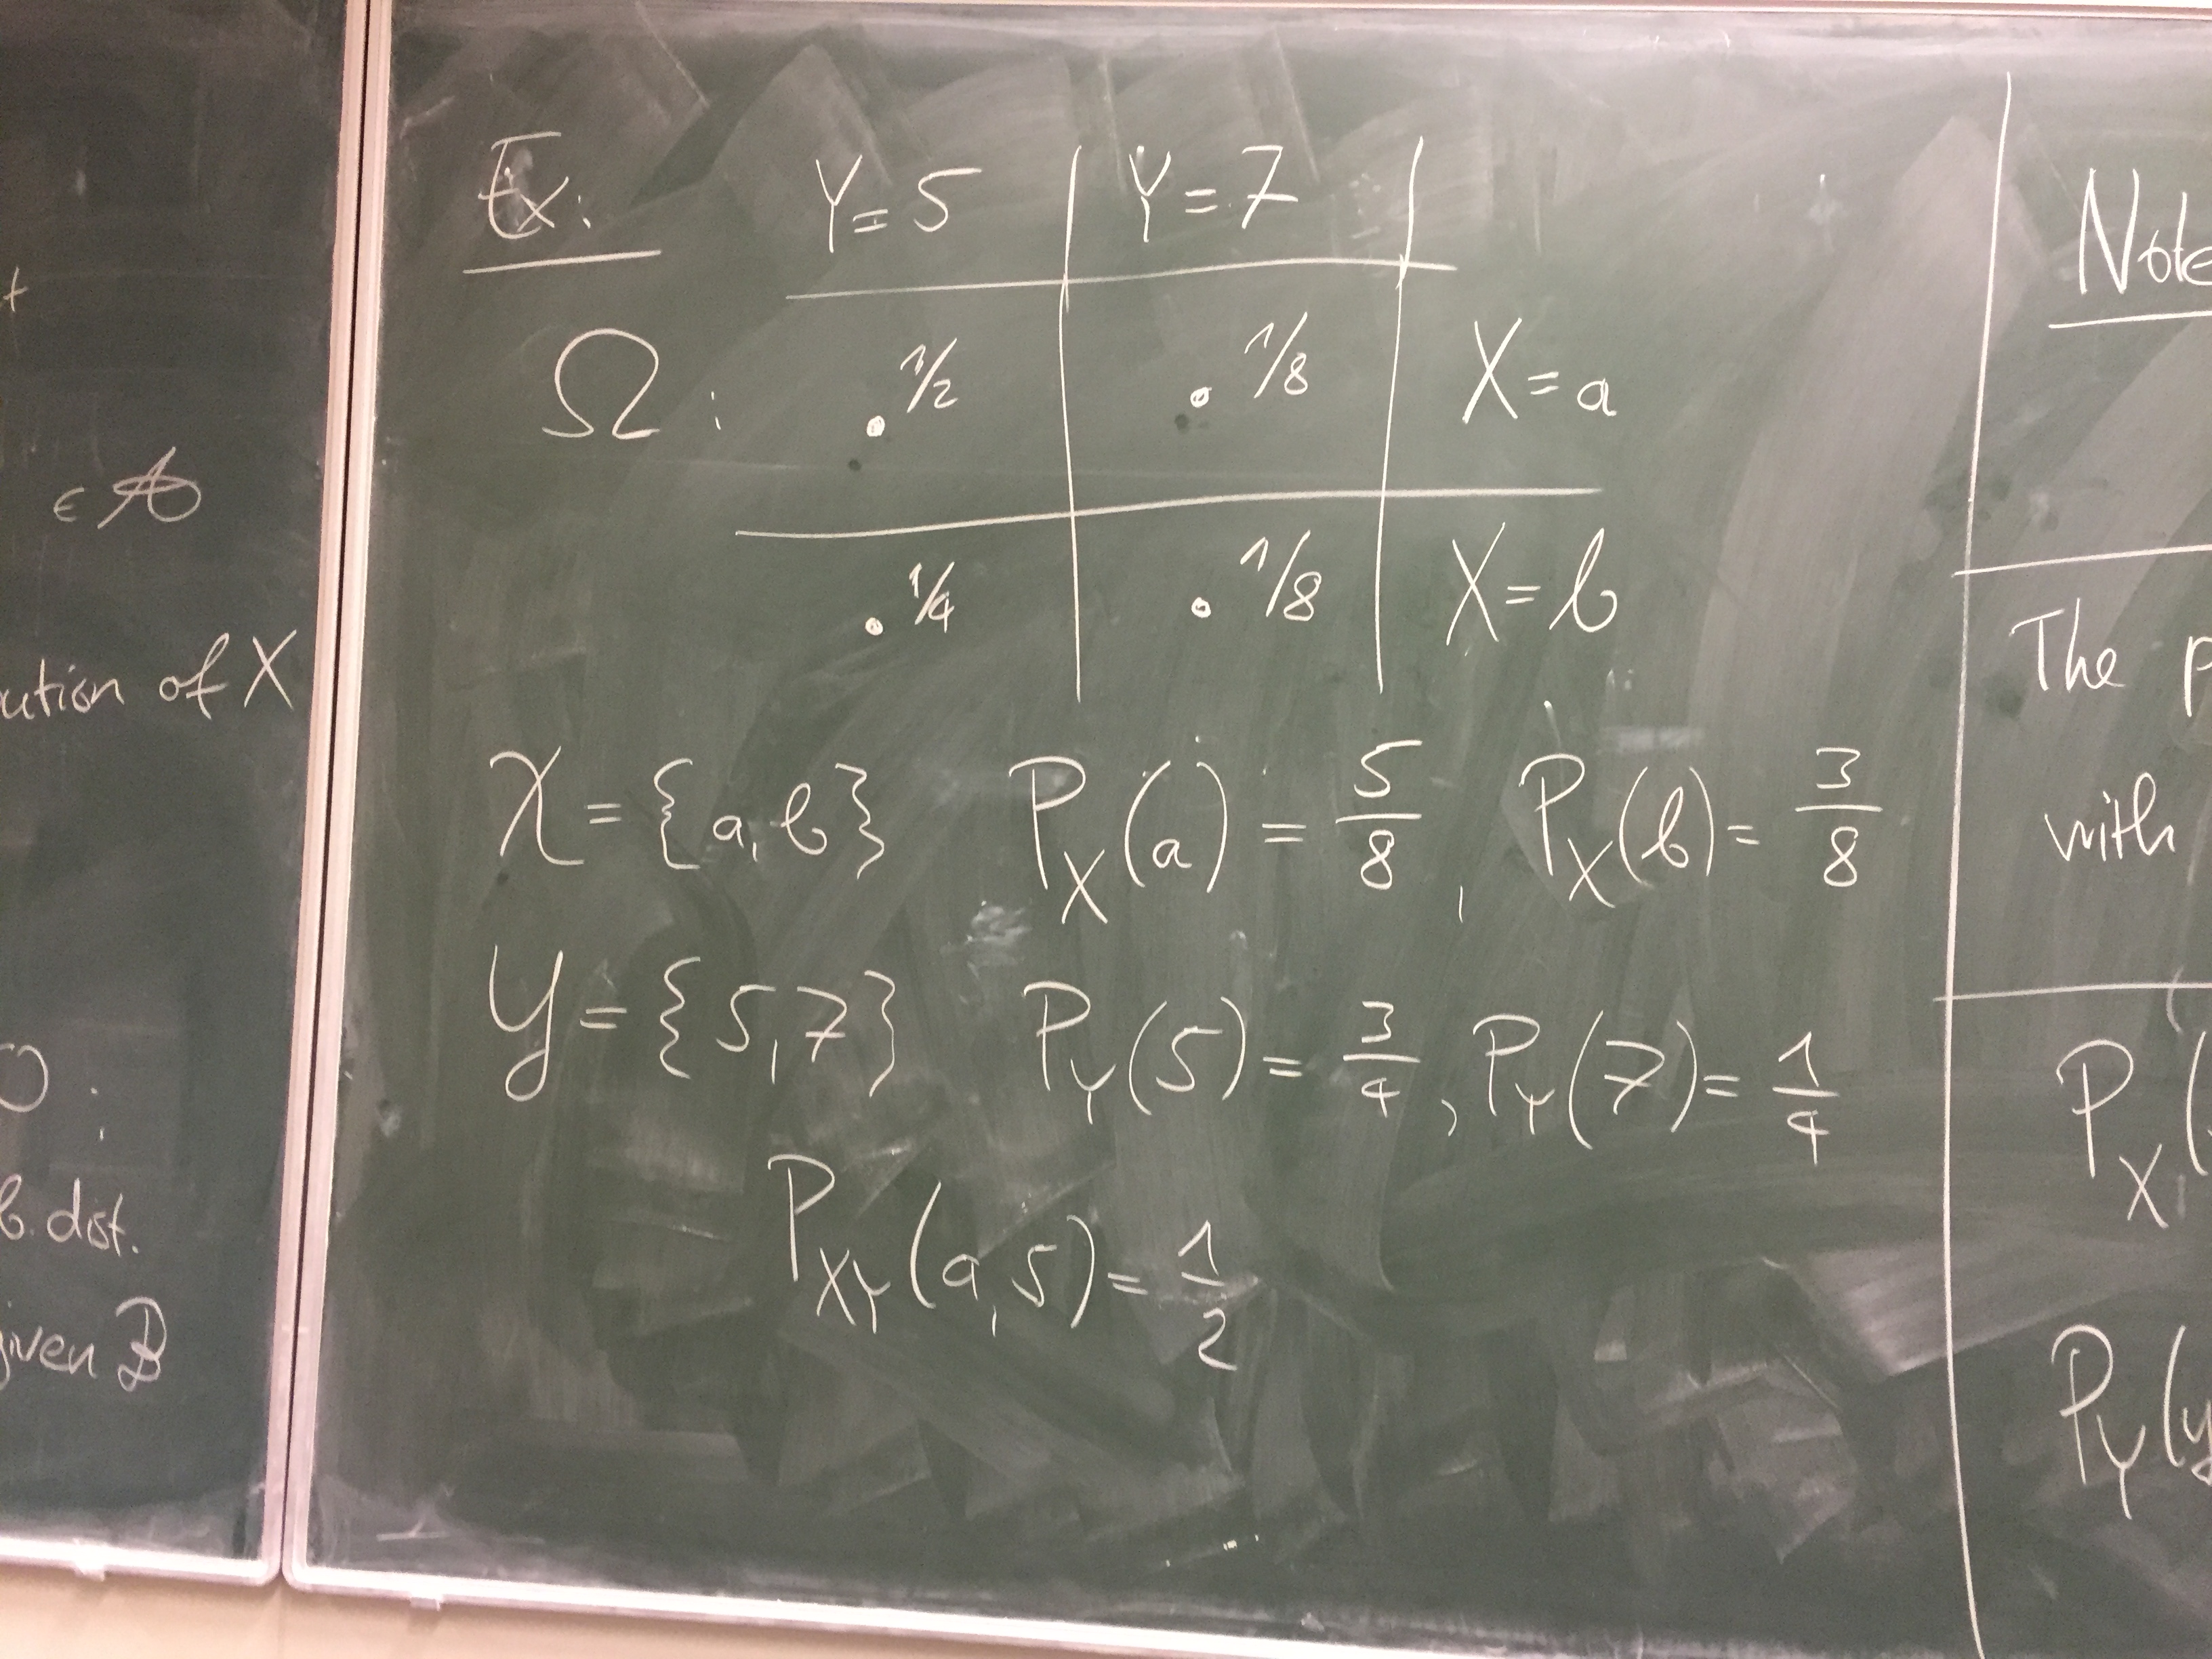 t
∈ 𝒜
ution of X
:
b. dist.
given B
Ex: Y=5 Y=7
Ω: 1/2 1/8 X=a
1/4 1/8 X=b
𝒳 = {a,b} P_X(a) = 5/8, P_X(b) = 3/8
𝒴 = {5,7} P_Y(5) = 3/4, P_Y(7) = 1/4
P_XY(a,5) = 1/2
Note
The p
with
P_X(
P_Y(y